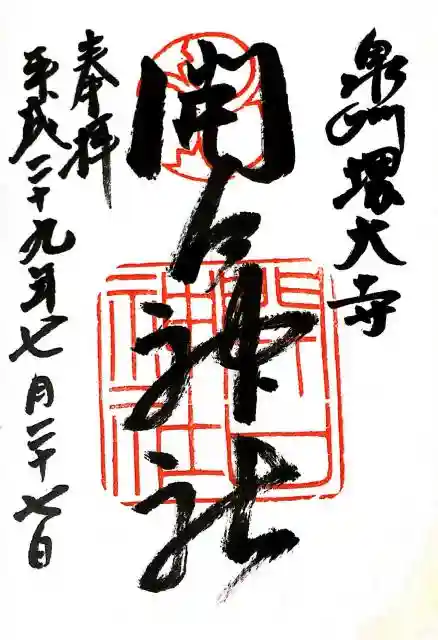 泉州堺大寺
開口神社
開口
神社
奉拝
平成二十九年七月二十七日